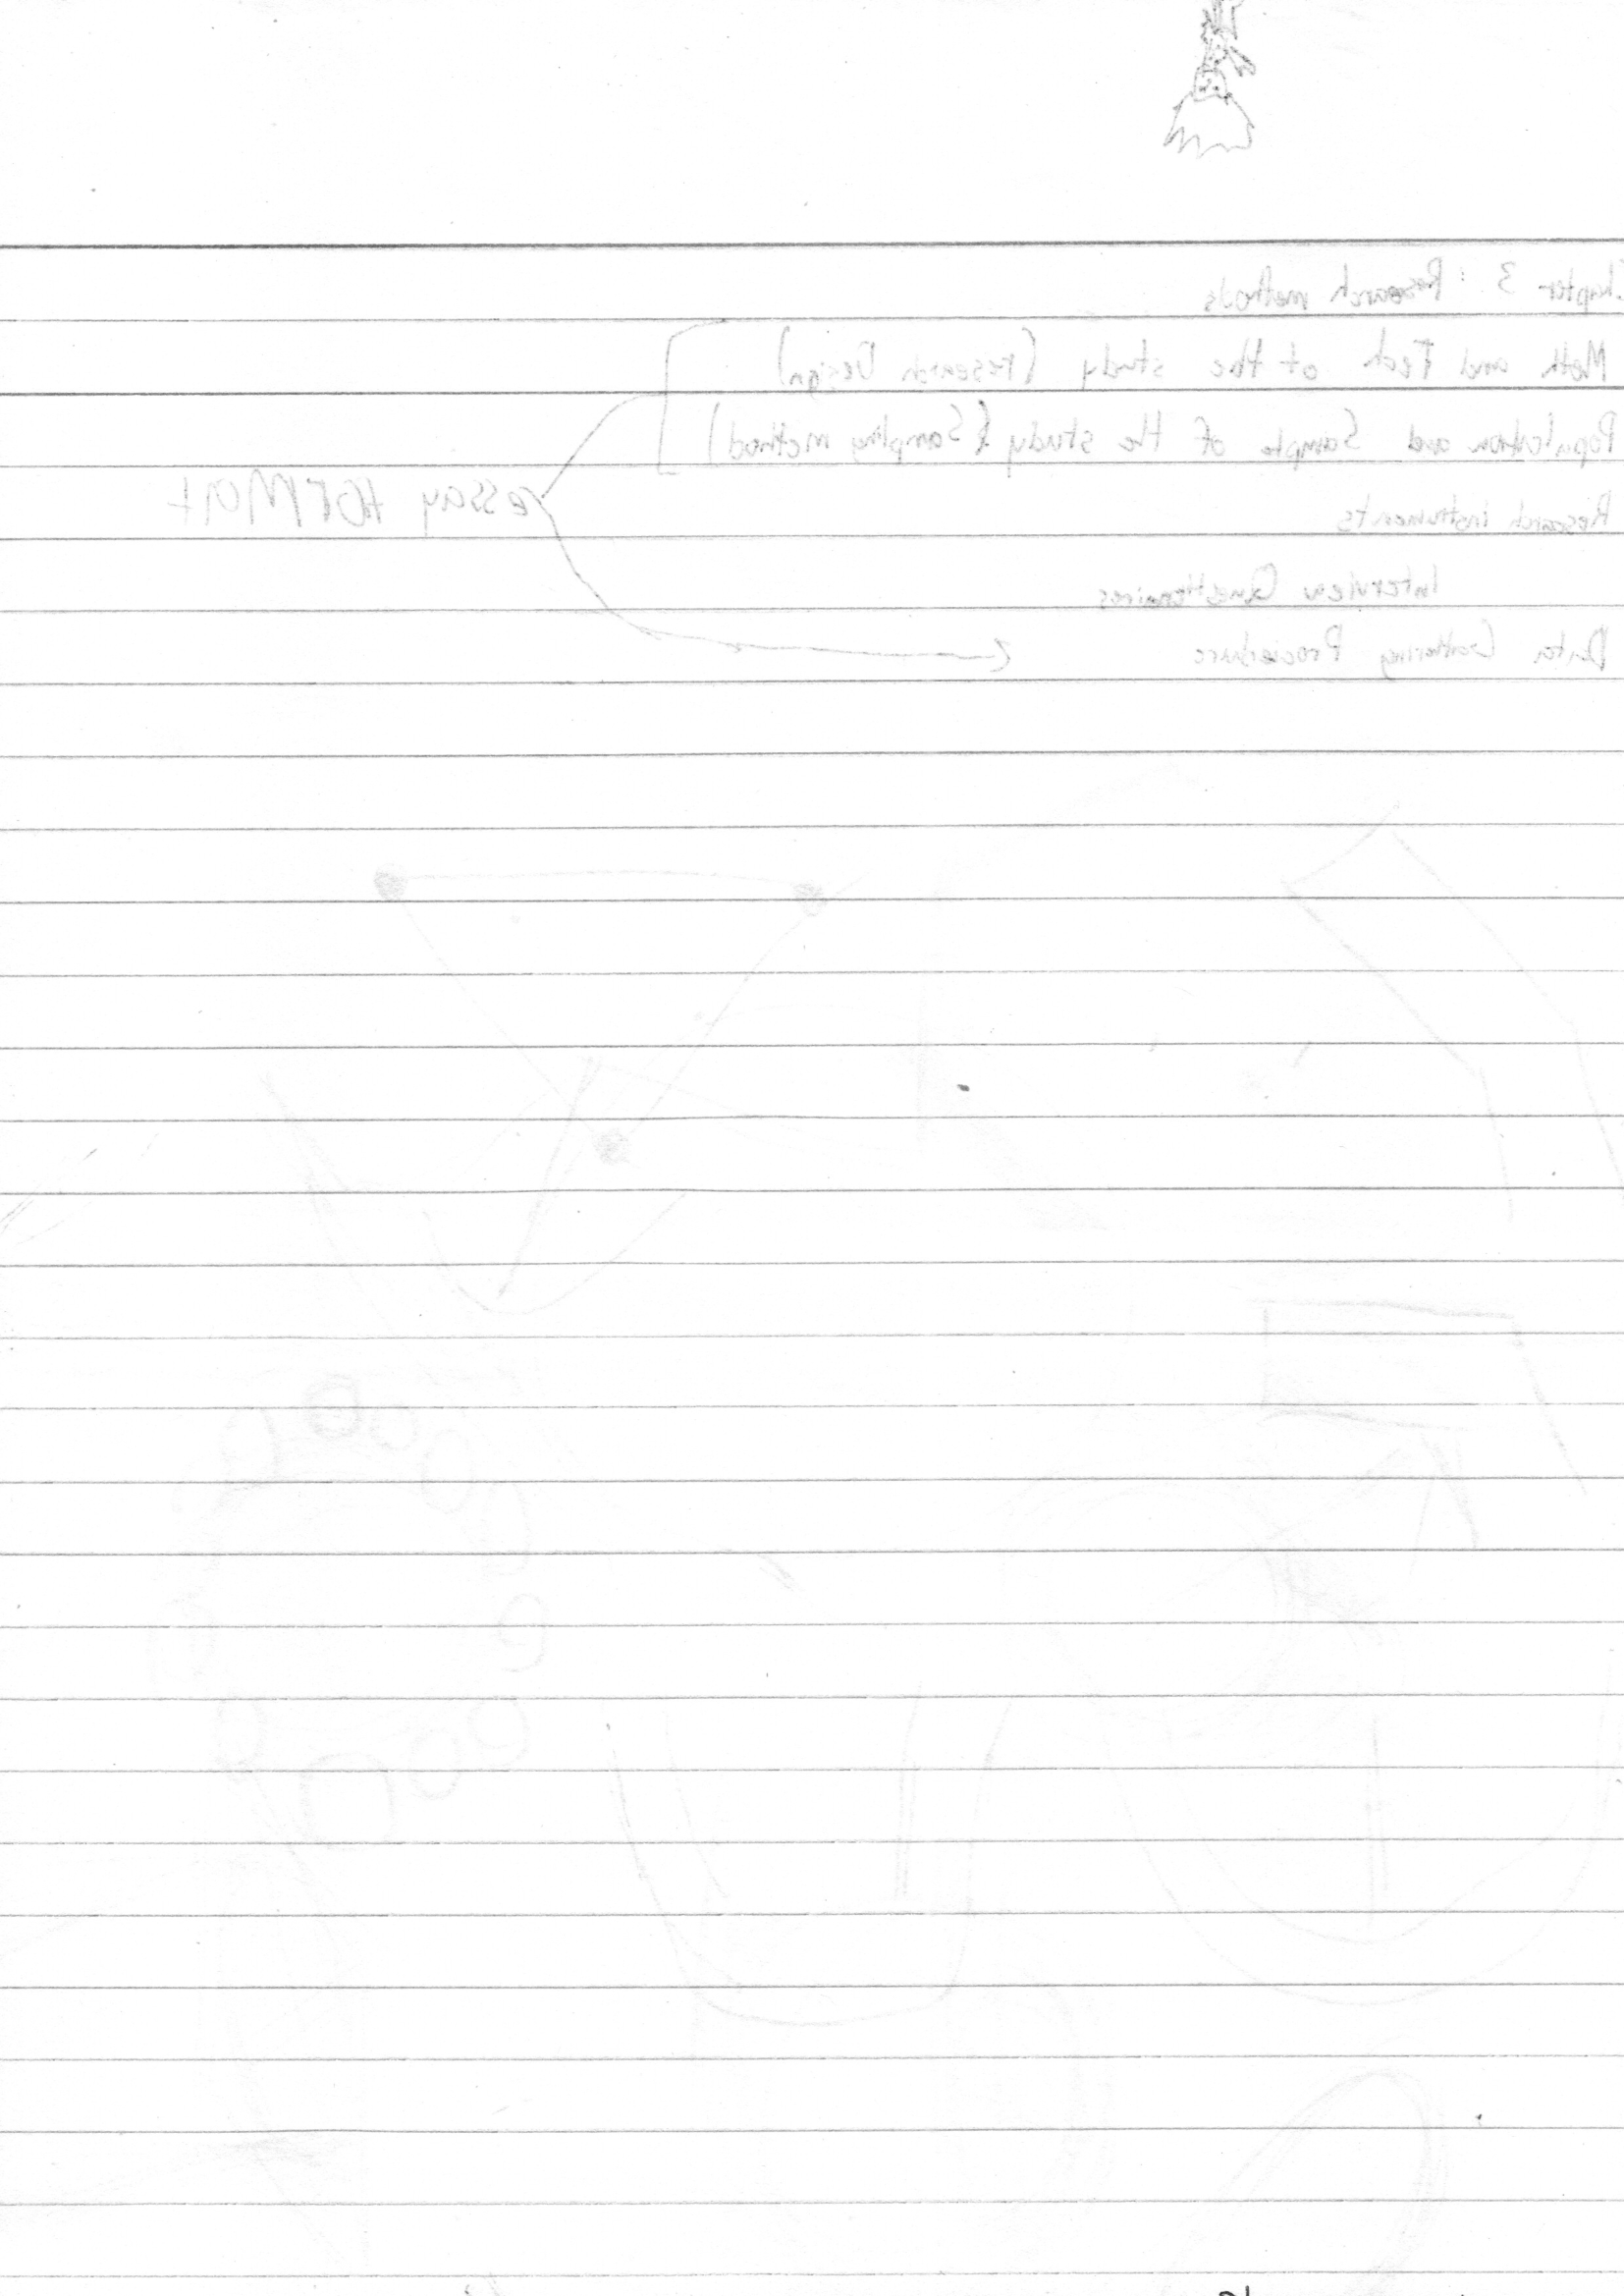 Chapter 3: Research methods
Meth and Tech of the study (research Design)
Population and Sample of the study (Sampling method)
essay format
Research instruments
Interview Questionaires
Data Gathering Procedure